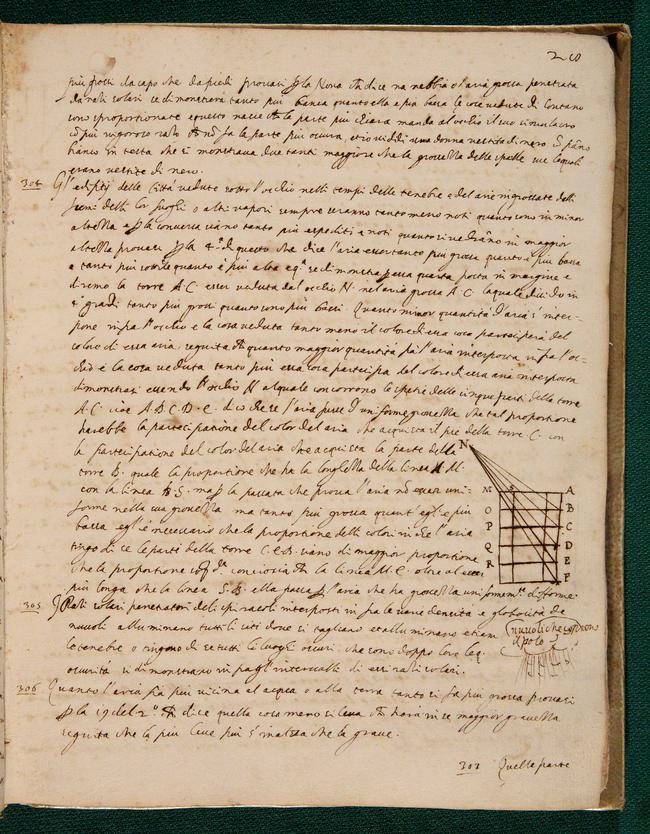 più grossi da capo che da piedi provasi p la Nona ch dice na nebbia o l'aria grossa penetrata
da razi solari se dimostrara tanto più bianca quanto ella e più bassa le cose vedute di lontano
sono sproportionate e questo nasce ch la parte più chiara manda al ochio il suo simulacro
cō più vigoroso razo ch nō fa la parte più oscura, et io viddi una donna vestita di nero
hanco in testa che si mostrava due tanti maggiore che la grossezza delle spalle sue le quali
erano vestite di nero.
304 Gl'edifitij delle Città vedute sotto l'occhio nelli tempi delle nebbie e del arie ingrossate dalli
fumi delli lor fuoghi o altri vapori sempre seranno tanto meno noti quanto sono in minor
altezza e p la conversa siano tanto più espediti e noti quanto si vedrāno in maggior
altezza provasi p la 4.ª di questo che dice l'aria esser tanto più grossa quanto è più bassa
e tanto più sottile quanto è più alta e q.º se dimostra p essa quarta posta in margine e
diremo la torre A.C. esser veduta dal occhio N. nel aria grossa A.C. la quale si divide in
gradi tanto più grossi quanto sono più bassi. Quanto minor quantità d'aria s'inter-
pone infra l'occhio e la cosa veduta tanto meno il colore di essa cosa partecipera del
colore di essa aria seguita ch quanto maggior quantità fia l'aria interposta infra l'oc-
chio e la cosa veduta tanto più essa cosa partecipa del colore di essa aria interposta
dimostrasi essendo l'occhio N al quale concorrono le spetie delle cinque parti della torre
A.C. cioè A.B.C.D.E. dico che se l'aria fusse d'uniforme grossezza che tal proportione
harebbe la participatione del color del aria che acquista il pie della torre C. con
la participatione del color del aria che acquista la parte della
torre B. quale la proportione che ha la longhezza della linea M.
con la linea B.S. ma p la passata che prova l'aria nō esser uni-
forme nella sua grossezza ma tanto più grossa quant'egl'e più
bassa egl'e necessario che la proportione delli colori in che l'aria
tinge di se le parti della torre C. e B. siano di maggior proportione
che la proportione conciosia ch la linea M.C. oltre al esser
più longa che la linea S.B. ella passa p l'aria che ha grossezza uniformem.te disforme.
N
M S A
O B
P C
Q D
R E
F
305 I razi solari penetratori delli spiracoli interposti in fra le varie densità e globosità de
nuvoli alluminano tutti li siti dove si tagliano et alluminano etiam
le tenebre e tingono di se tutti li luoghi oscuri che sono doppo loro le q.
oscurità si dimostrano in fra gl'intervalli di essi razi solari.
nuvoli che coprono
il sole
306 Quanto l'aria fia più vicina al acqua o alla terra tanto si fa più grossa provasi
p la 19 del 2.º ch dice quella cosa meno si leva ch harà in se maggior gravezza
seguita che la più lieve più s'inalza che la grave.
303 Quella parte